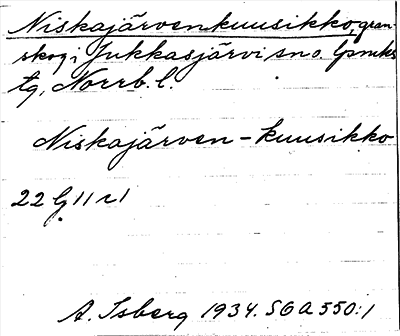 Niskajärvenkuusikko, gran-
skog i Jukkasjärvi sn o. lpmks
tg, Norrb. l.
Niskajärven-kuusikko
22 G 11 r 1
A. Isberg 1934. SGA 550:1